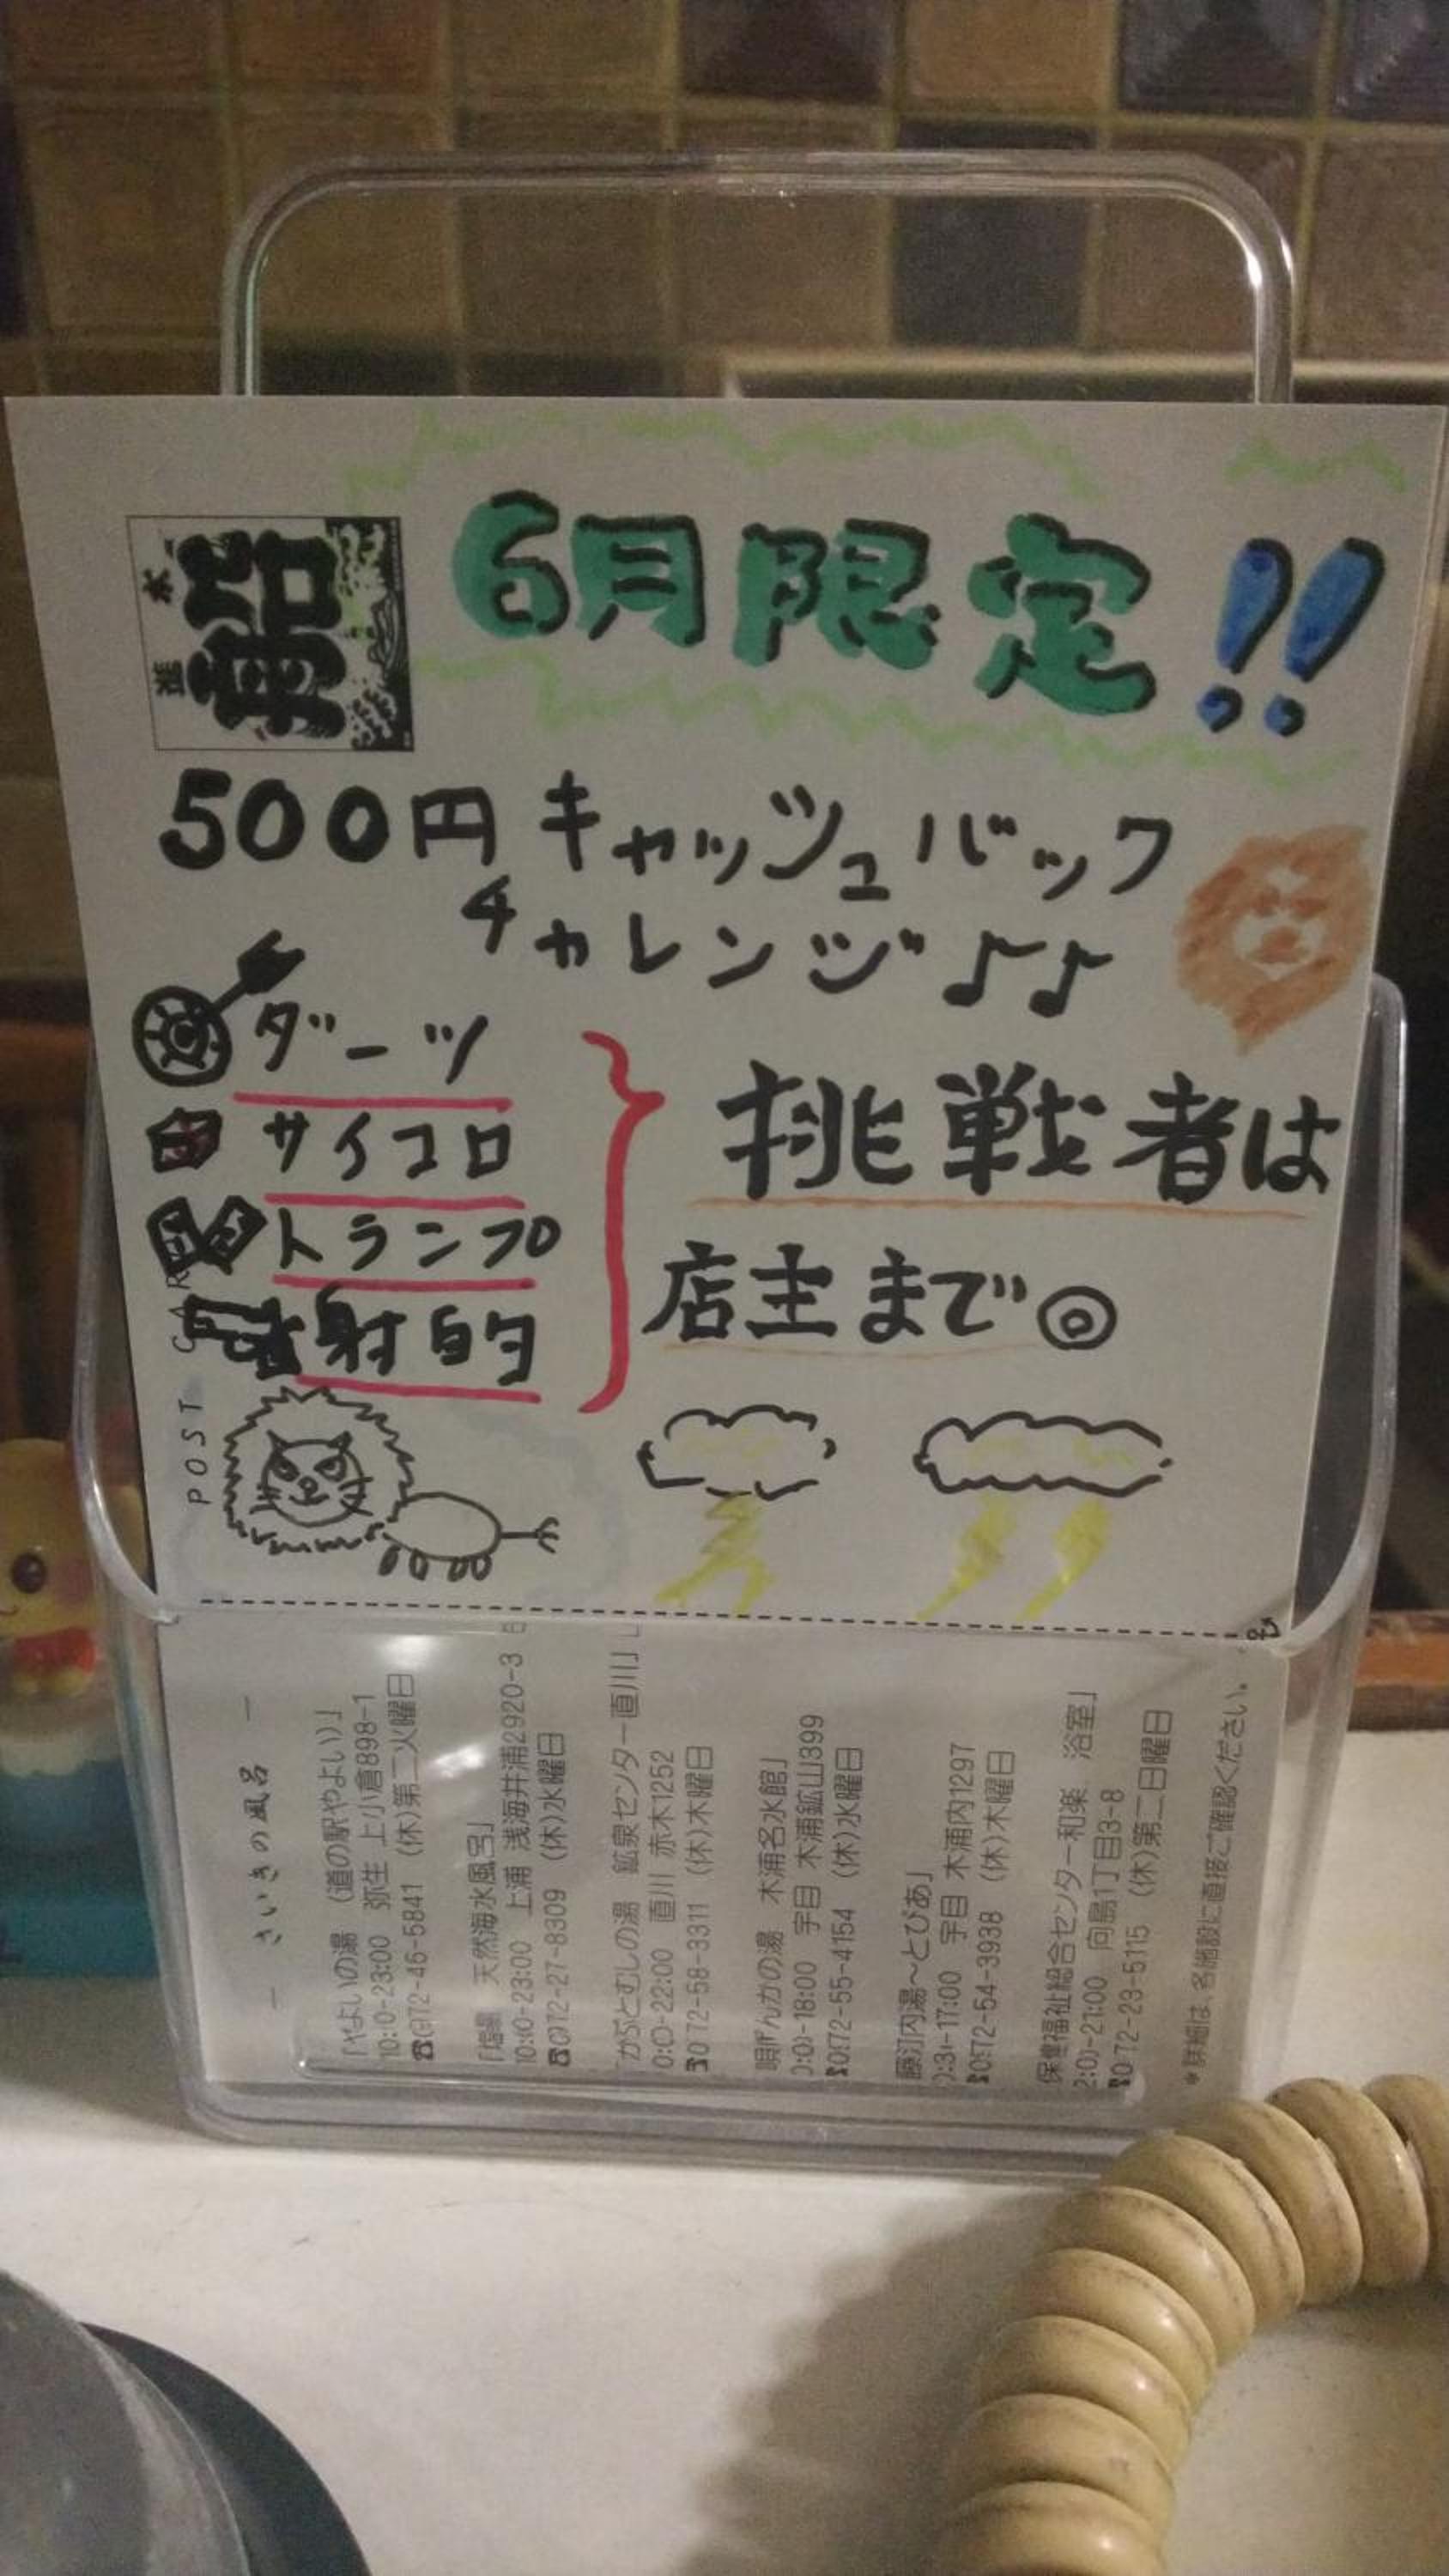 6月限定!!
500円キャッシュバック
チャレンジ♪♪
ダーツ
サイコロ
トランプ
射的
挑戦者は
店主まで◎
POST CAR
― さいきの風呂 ―
「やよいの湯 (道の駅やよい)」
10:00-23:00 弥生 上小倉898-1
☎0972-46-5841 (休)第二火曜日
「塩湯 天然海水風呂」
10:00-23:00 上浦 浅海井浦2920-3
☎0972-27-8309 (休)水曜日
「かぶとむしの湯 鉱泉センター直川」
0:00-22:00 直川 赤木1252
0972-58-3311 (休)木曜日
唄げんかの湯 木浦名水館」
0:00-18:00 宇目 木浦鉱山399
0972-55-4154 (休)水曜日
藤河内湯~とぴあ」
:30-17:00 宇目 木浦内1297
0972-54-3938 (休)木曜日
保健福祉総合センター和楽 浴室」
2:00-21:00 向島1丁目3-8
0972-23-5115 (休)第二日曜日
*詳細は、各施設に直接ご確認ください。